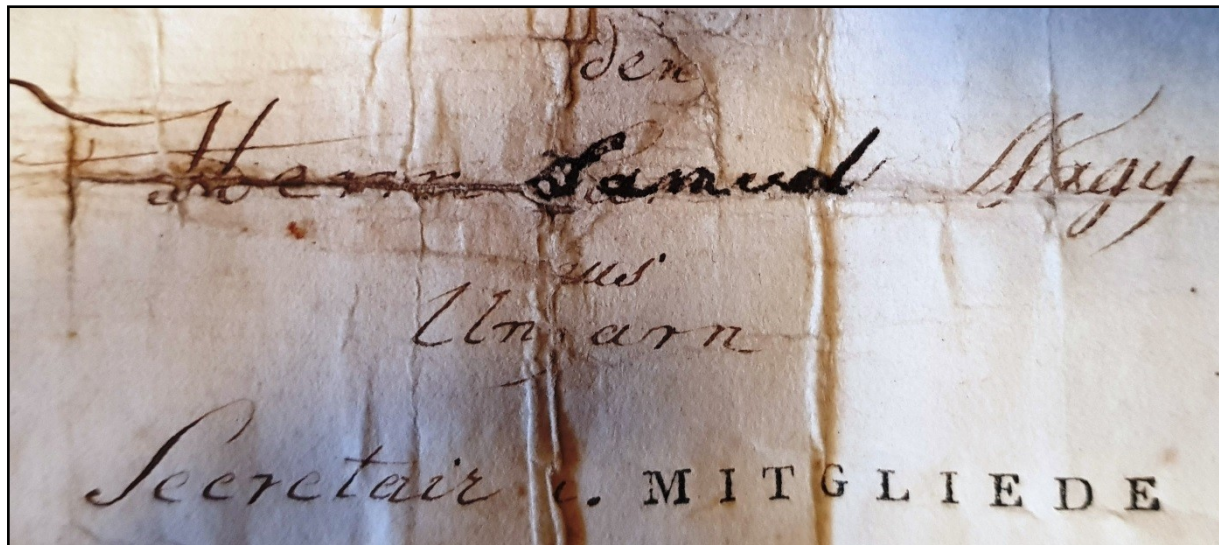 den
Herrn Samuel Nagy
aus
Ungarn
Secretair u. MITGLIEDE